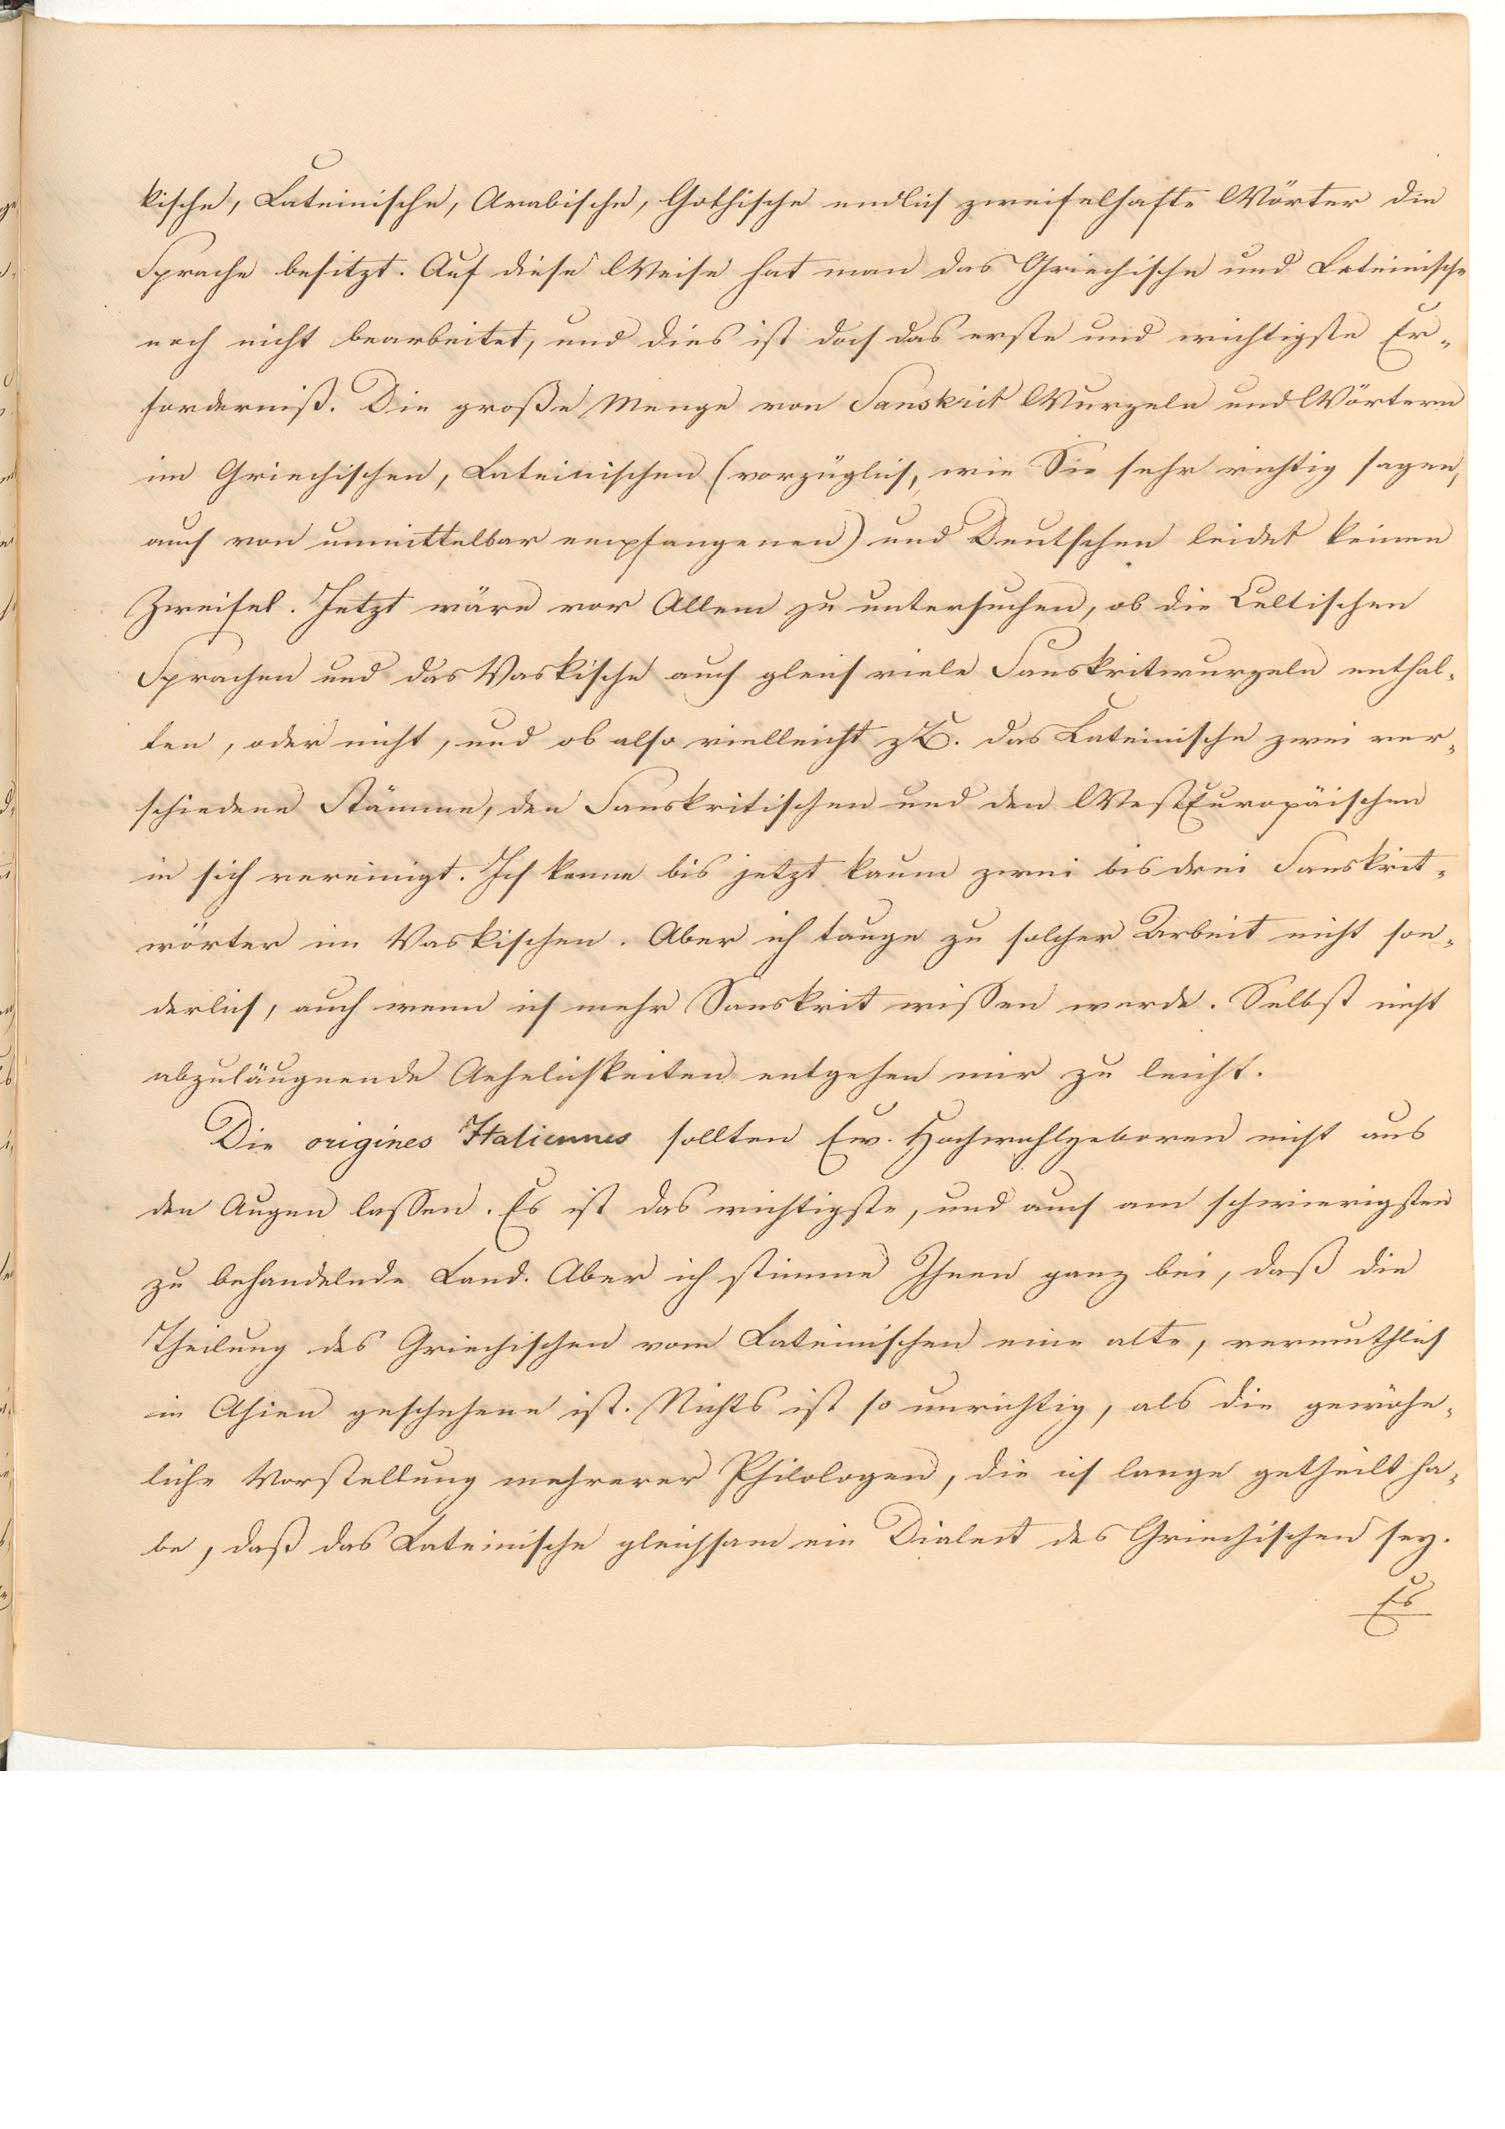 kische, Lateinische, Arabische, Gothische endlich zweifelhafte Wörter die
Sprache besitzt. Auf diese Weise hat man das Griechische und Lateinische
noch nicht bearbeitet, und dies ist doch das erste und wichtigste Er-
forderniß. Die große Menge von Sanskrit Wurzeln und Wörtern
im Griechischen, Lateinischen (vorzüglich, wie Sie sehr richtig sagen,
auch von unmittelbar empfangenen) und Deutschen leidet keinen
Zweifel. Jetzt wäre vor Allem zu untersuchen, ob die Celtischen
Sprachen und das Vaskische auch gleich viele Sanskritwurzeln enthal-
ten, oder nicht, und ob also vielleicht z.B. das Lateinische zwei ver-
schiedene Stämme, den Sanskritischen und den WestEuropäischen
in sich vereinigt. Ich kenne bis jetzt kaum zwei bis drei Sanskrit-
wörter im Vaskischen. Aber ich tauge zu solcher Arbeit nicht son-
derlich, auch wenn ich mehr Sanskrit wissen werde. Selbst nicht
abzuläugnende Aehnlichkeiten entgehen mir zu leicht.
Die origines Italiennes sollten Ew. Hochwohlgeboren nicht aus
den Augen lassen. Es ist das wichtigste, und auch am schwierigsten
zu behandelnde Land. Aber ich stimme Ihnen ganz bei, daß die
Theilung des Griechischen vom Lateinischen eine alte, vermuthlich
in Asien geschehene ist. Nichts ist so unrichtig, als die gewöhn-
liche Vorstellung mehrerer Philologen, die ich lange getheilt ha-
be, daß das Lateinische gleichsam ein Dialect des Griechischen sey.
Es